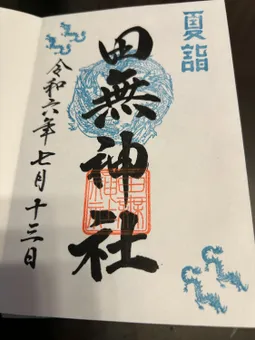 夏詣
田無神社
令和六年七月十三日